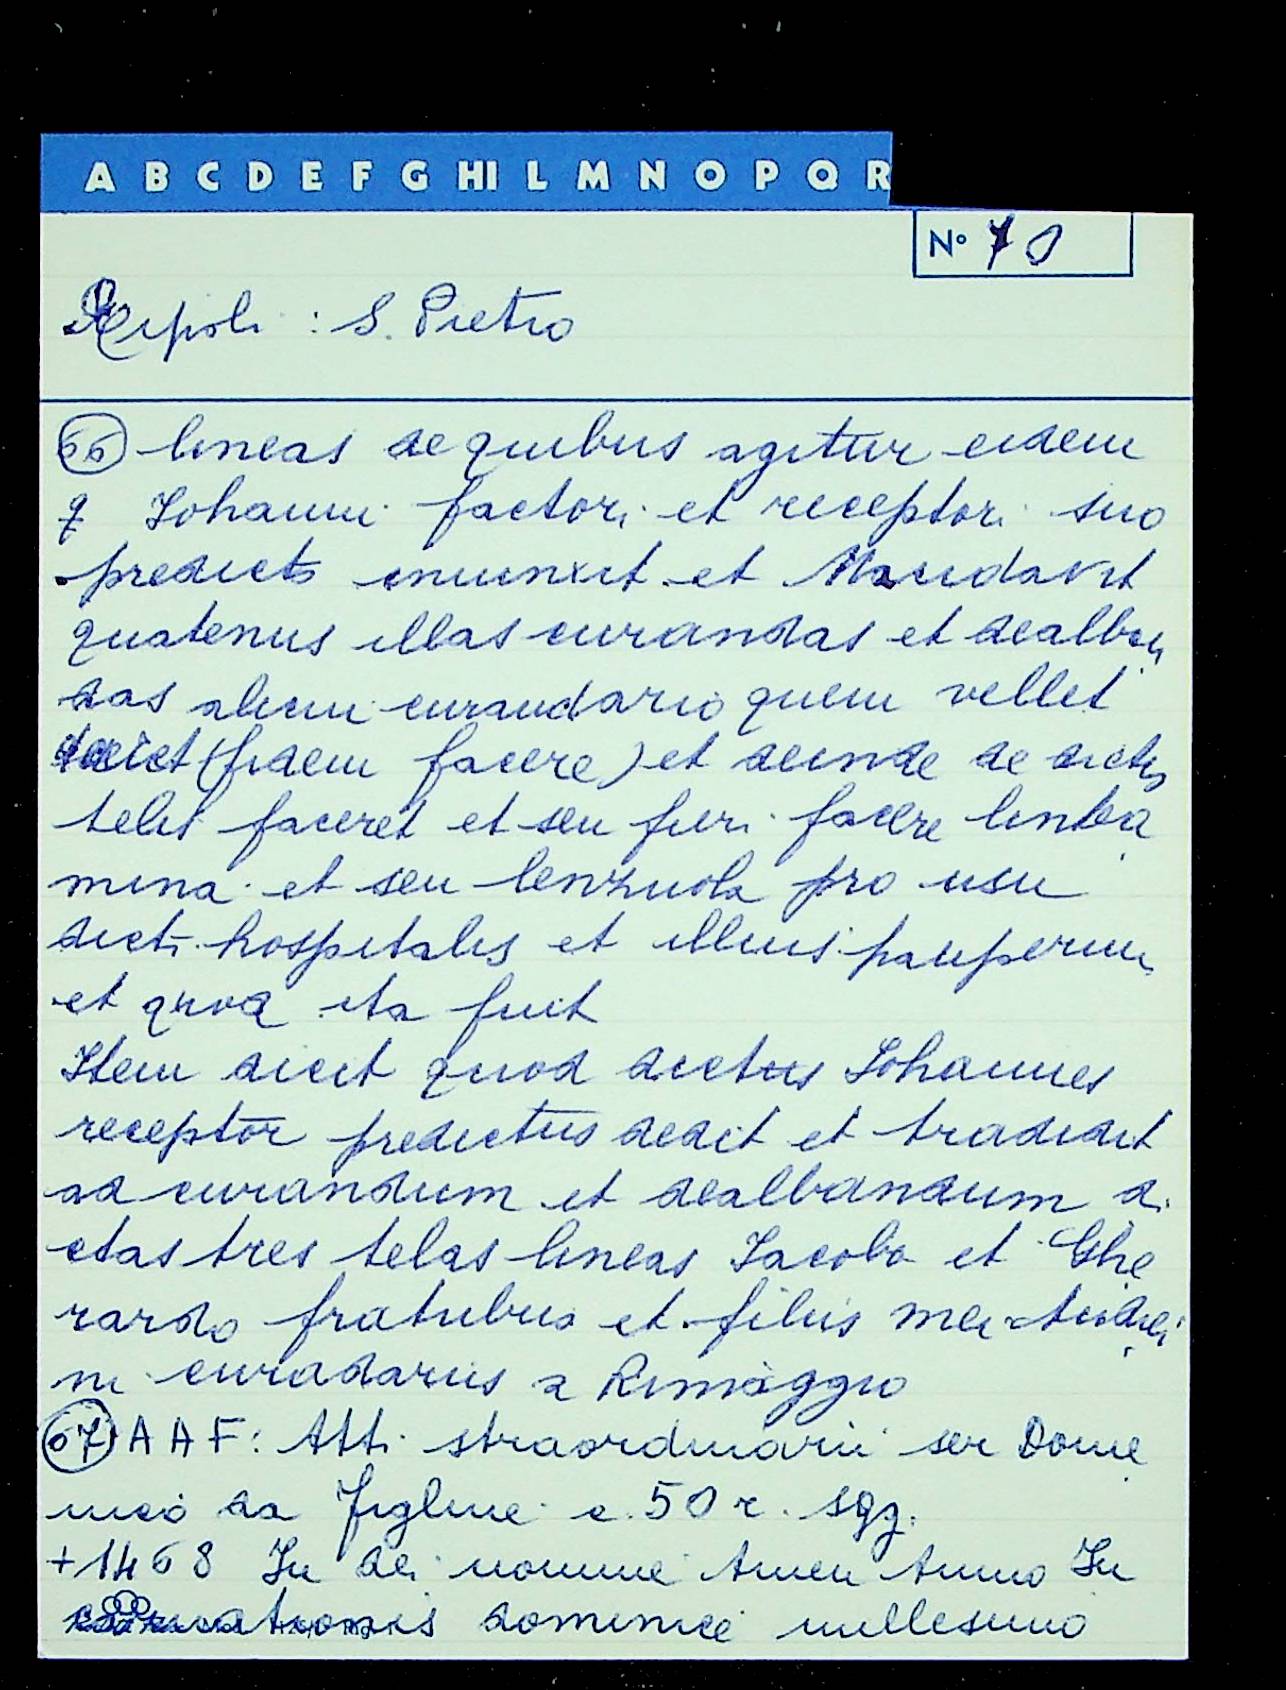 A B C D E F G HI L M N O P Q R
N° 70
Ripoli : S. Pietro
66 lineas de quibus agitur eidem
q Johanni factori et receptori suo
predicto iniunxit et Mandavit
quatenus illas curandas et dealban
das alicui curandario quem vellet
daret (fidem facere) et deinde de dictis
telis faceret et seu fieri facere lintea
mina et seu lenzuola pro usu
dicti hospitalis et illius pauperum
et quod ita fuit
Item dicit quod dictus Johannes
receptor predictus dedit et tradidit
ad curandum et dealbandum di
ctas tres telas lineas Jacobo et Ghe
rardo fratribus et filiis
ni curadariis a Rimaggio
67 A A F: Atti straordinarii ser Dome
nico da Figline c. 50 r. sgg.
+ 1468 In dei nomine Amen Anno In
carnationis dominice millesimo